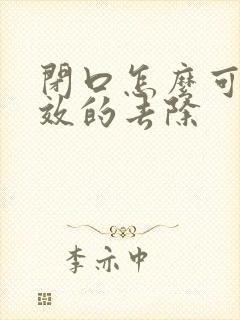 閉口怎麼可
效的去除
李亦中